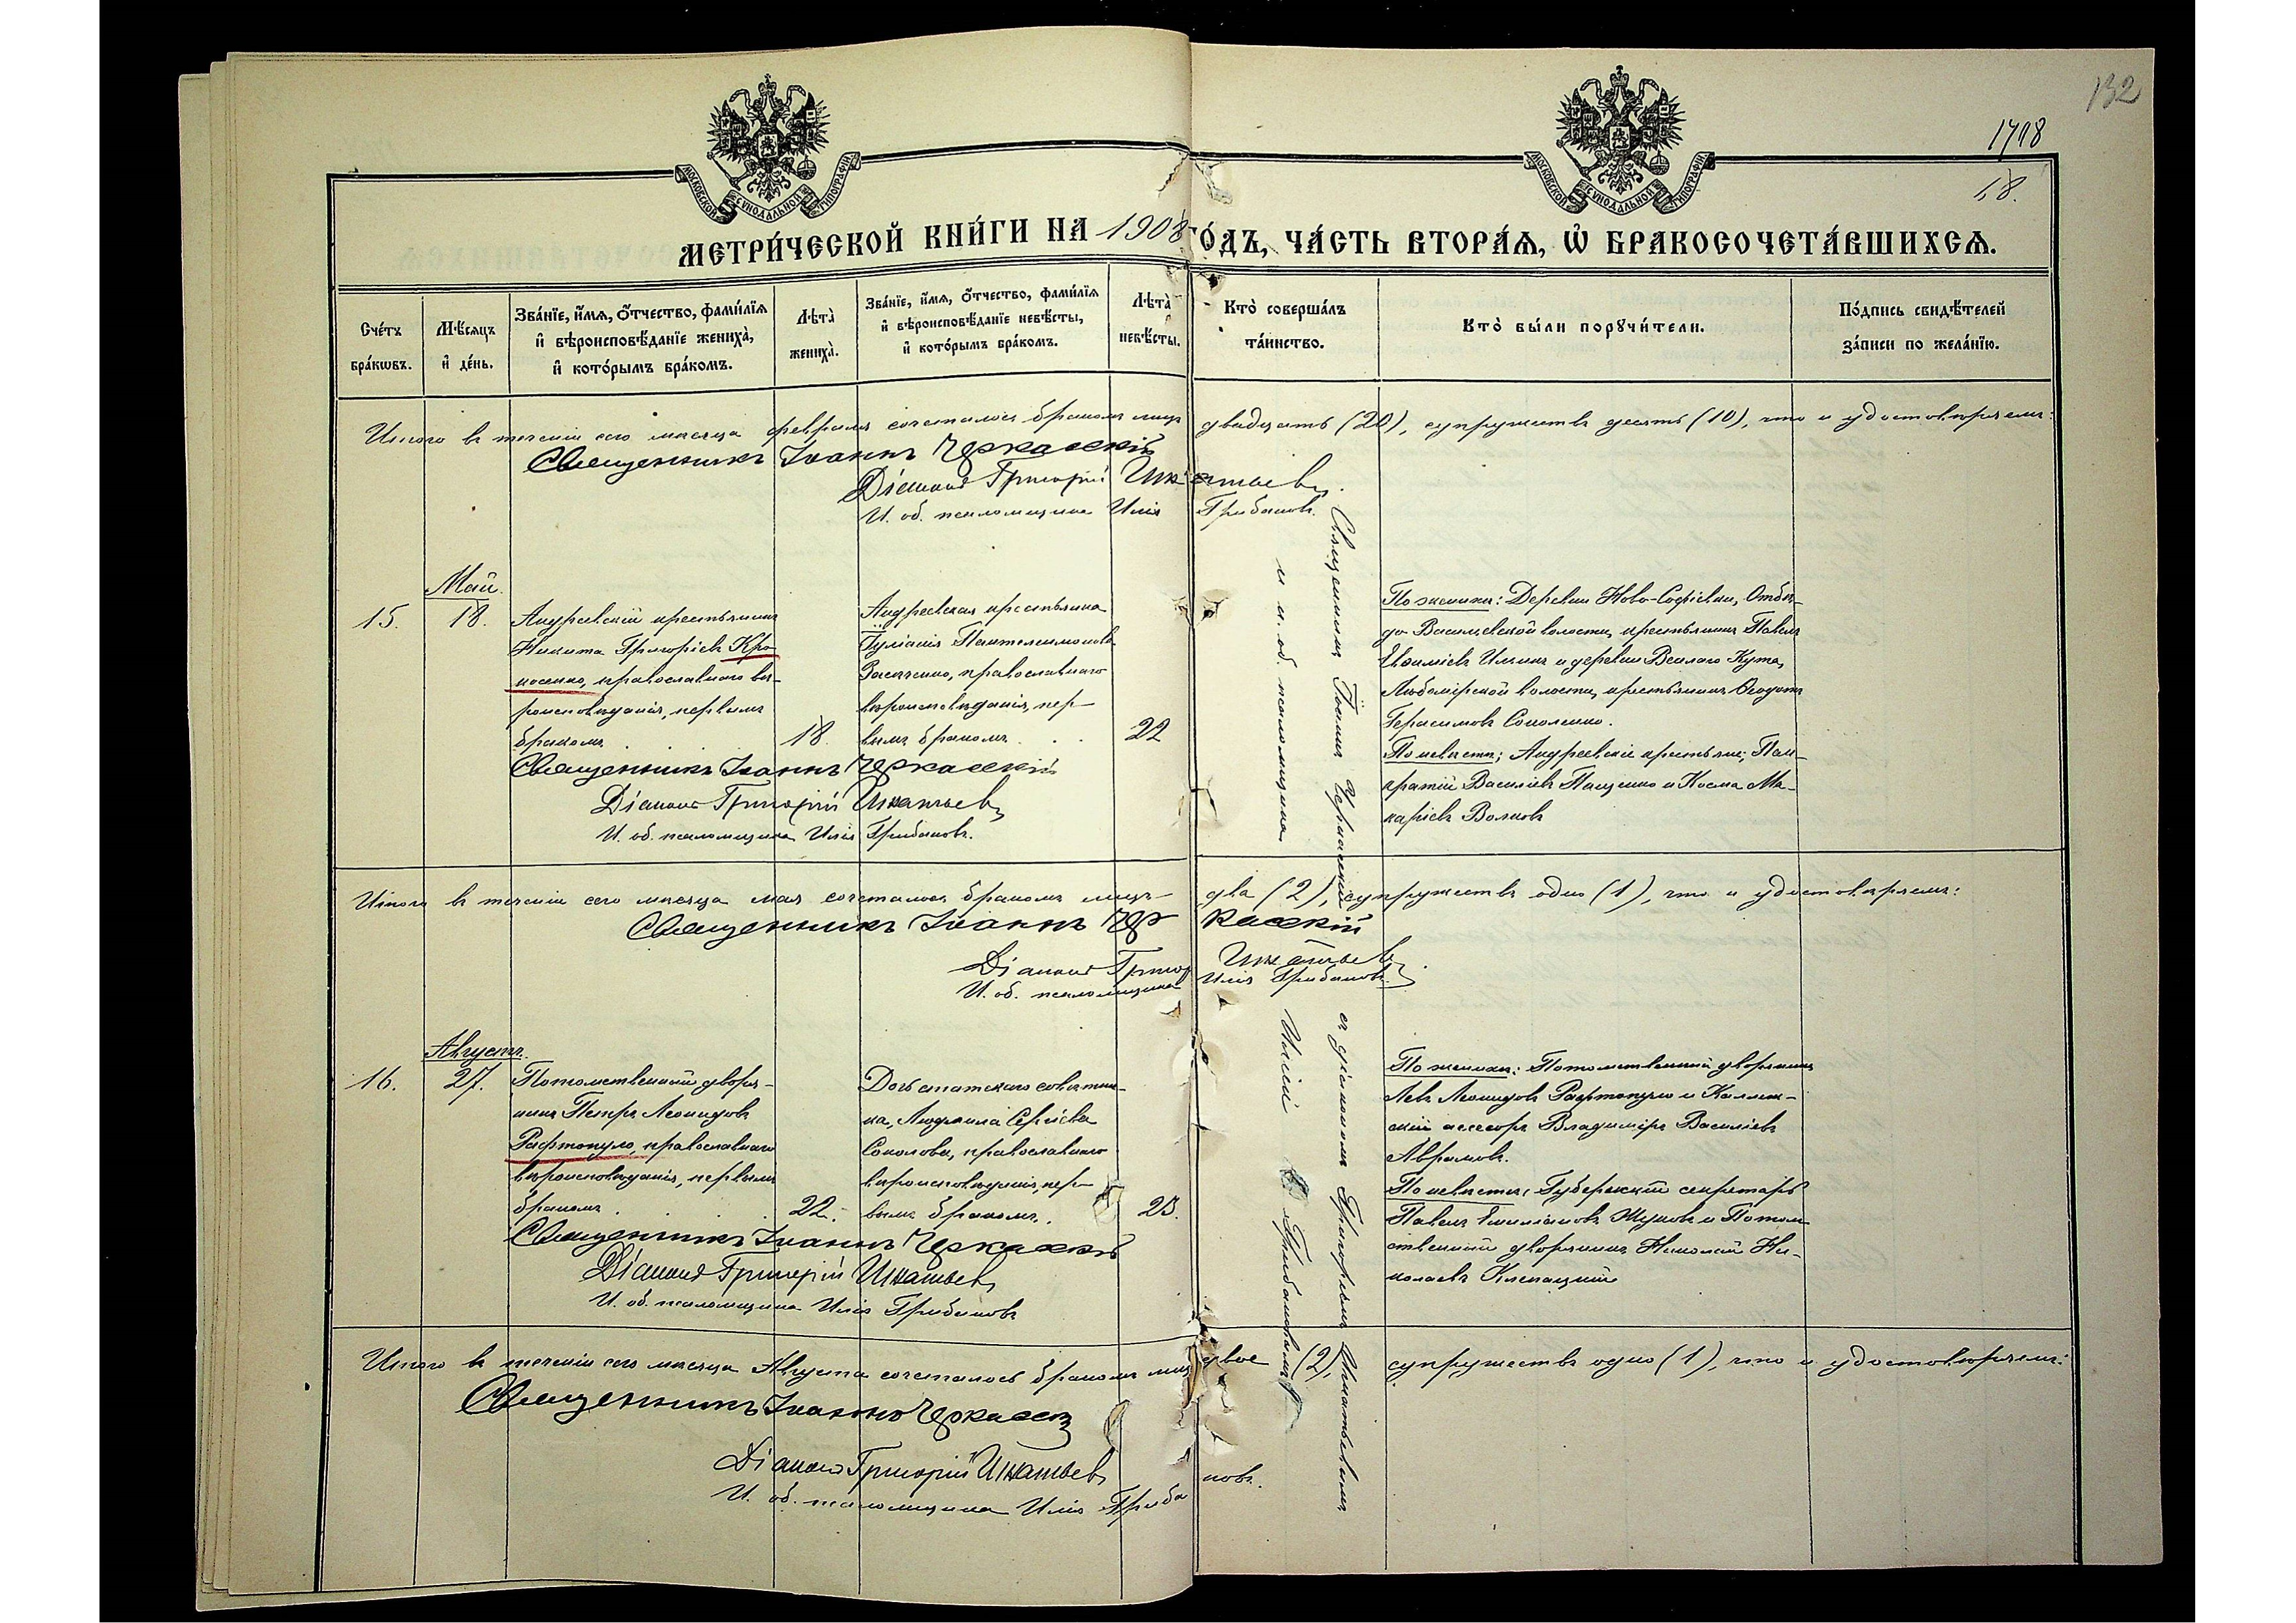 132
1718
18.
МОСКОВСКОЙ СѴНОДАЛЬНОЙ ТИПОГРАФІИ
МОСКОВСКОЙ СѴНОДАЛЬНОЙ ТИПОГРАФІИ
МЕТРИ́ЧЕСКОЙ КНИ́ГИ НА 1908 ГО́ДЪ, ЧА́СТЬ ВТОРА́Ѧ, Ѡ҆ БРАКОСОЧЕТА́ВШИХСѦ.
Сче́тъ бра́кѡвъ.
Мѣ́сяцъ и҆ де́нь.
Зва́нїе, и҆́мѧ, ѻ҆́тчество, фами́лїѧ и҆ вѣроисповѣ́данїе жениха̀, и҆ кото́рымъ бра́комъ.
Лѣта̀ жениха̀.
Зва́нїе, и҆́мѧ, ѻ҆́тчество, фами́лїѧ и҆ вѣроисповѣ́данїе невѣ́сты, и҆ кото́рымъ бра́комъ.
Лѣта̀ невѣ́сты.
Кто̀ соверша́лъ та́инство.
Кто̀ бы́ли порꙋчи́тели.
По́дпись свидѣ́телей за́писи по жела́нїю.
Итого въ теченіи сего мѣсяца февраля сочеталось бракомъ лицъ двадцать (20), супружествъ десять (10), что и удостовѣряемъ:
Священникъ Іоаннъ Черкасскій
Діаконъ Григорій Игнатьевъ.
И. об. псаломщика Илія Грибановъ.
Май.
15.
18.
Андреевскій крестьянинъ
Никита Григоріевъ Кро-
носенко, православнаго вѣ-
роисповѣданія, первымъ
бракомъ
18.
Андреевская крестьянка
Іуліанія Пантелеимонова
Засенко, православнаго
вѣроисповѣданія, пер-
вымъ бракомъ
22
Священникъ Іоаннъ Черкасскій съ діакономъ Григоріемъ Игнатьевымъ
и и. об. псаломщика Иліей Грибановымъ
По женихѣ: Деревни Ново-Софіевки,
до Васильевской волости, крестьянинъ Павелъ
Евѳиміевъ и деревни Веселаго Кута,
Любомірской волости, крестьянинъ Ѳеодотъ
Герасимовъ Соколенко.
По невѣстѣ: Андреевскіе крестьяне: Пан-
кратій Василіевъ Пащенко и Косма Ма-
каріевъ Волковъ
Священникъ Іоаннъ Черкасскій
Діаконъ Григорій Игнатьевъ
И. об. псаломщика Илія Грибановъ.
Итого въ теченіи сего мѣсяца мая сочеталось бракомъ лицъ два (2), супружествъ одно (1), что и удостовѣряемъ:
Священникъ Іоаннъ Черкасскій
Діаконъ Григор Игнатьевъ.
И. об. псаломщика Илія Грибановъ.
Августъ.
16.
27.
Потомственный дворя-
нинъ Петръ Леонидовъ
Рафтопуло, православнаго
вѣроисповѣданія, первымъ
бракомъ
22.
Дочь статскаго совѣтни-
ка, Людмила Сергіева
Соколова, православнаго
вѣроисповѣданія, пер-
вымъ бракомъ.
23.
По женихѣ: Потомственный дворянинъ
Левъ Леонидовъ Рафтопуло и Коллеж-
скій ассесоръ Владиміръ Василіевъ
Аврамовъ.
По невѣстѣ: Губернскій секретарь
Павелъ Емиліановъ Жуковъ и Потом-
ственный дворянинъ Николай Ни-
колаевъ Клепацкій
Священникъ Іоаннъ Черкасскій
Діаконъ Григорій Игнатьевъ
И. об. псаломщика Илія Грибановъ
Итого въ теченіи сего мѣсяца Августа сочеталось бракомъ лицъ двое (2), супружествъ одно (1), что и удостовѣряемъ:
Священникъ Іоаннъ Черкасскій
Діаконъ Григорій Игнатьевъ
И. об. псаломщика Илія Грибановъ.